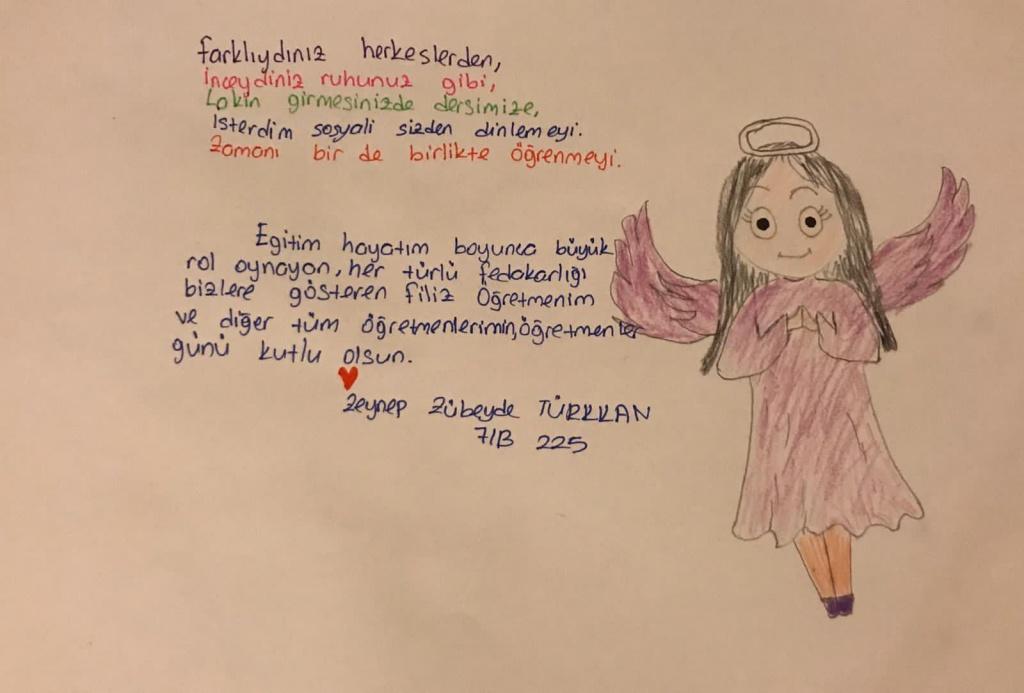 farklıydınız herkeslerden,
İnceydiniz ruhunuz gibi,
Lakin girmesinizde dersimize,
Isterdim sosyali sizden dinlemeyi.
Zamanı bir de birlikte öğrenmeyi.
Egitim hayatım boyunca büyük
rol oynayan, her türlü fedakarlığı
bizlere gösteren filiz Öğretmenim
ve diğer tüm öğretmenlerimin, öğretmenler
günü kutlu olsun.
Zeynep Zübeyde TÜRKKAN
7/B 225